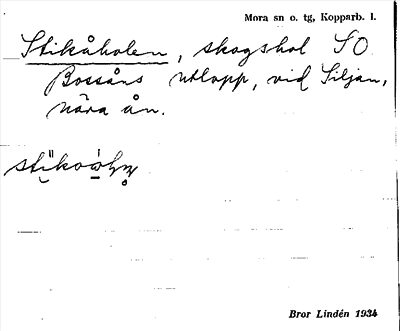 Mora sn o. tg, Kopparb. l.
Stikåholen, skogshol SO
Bossåns utlopp, vid Siljan,
nära ån.
Bror Lindén 1934